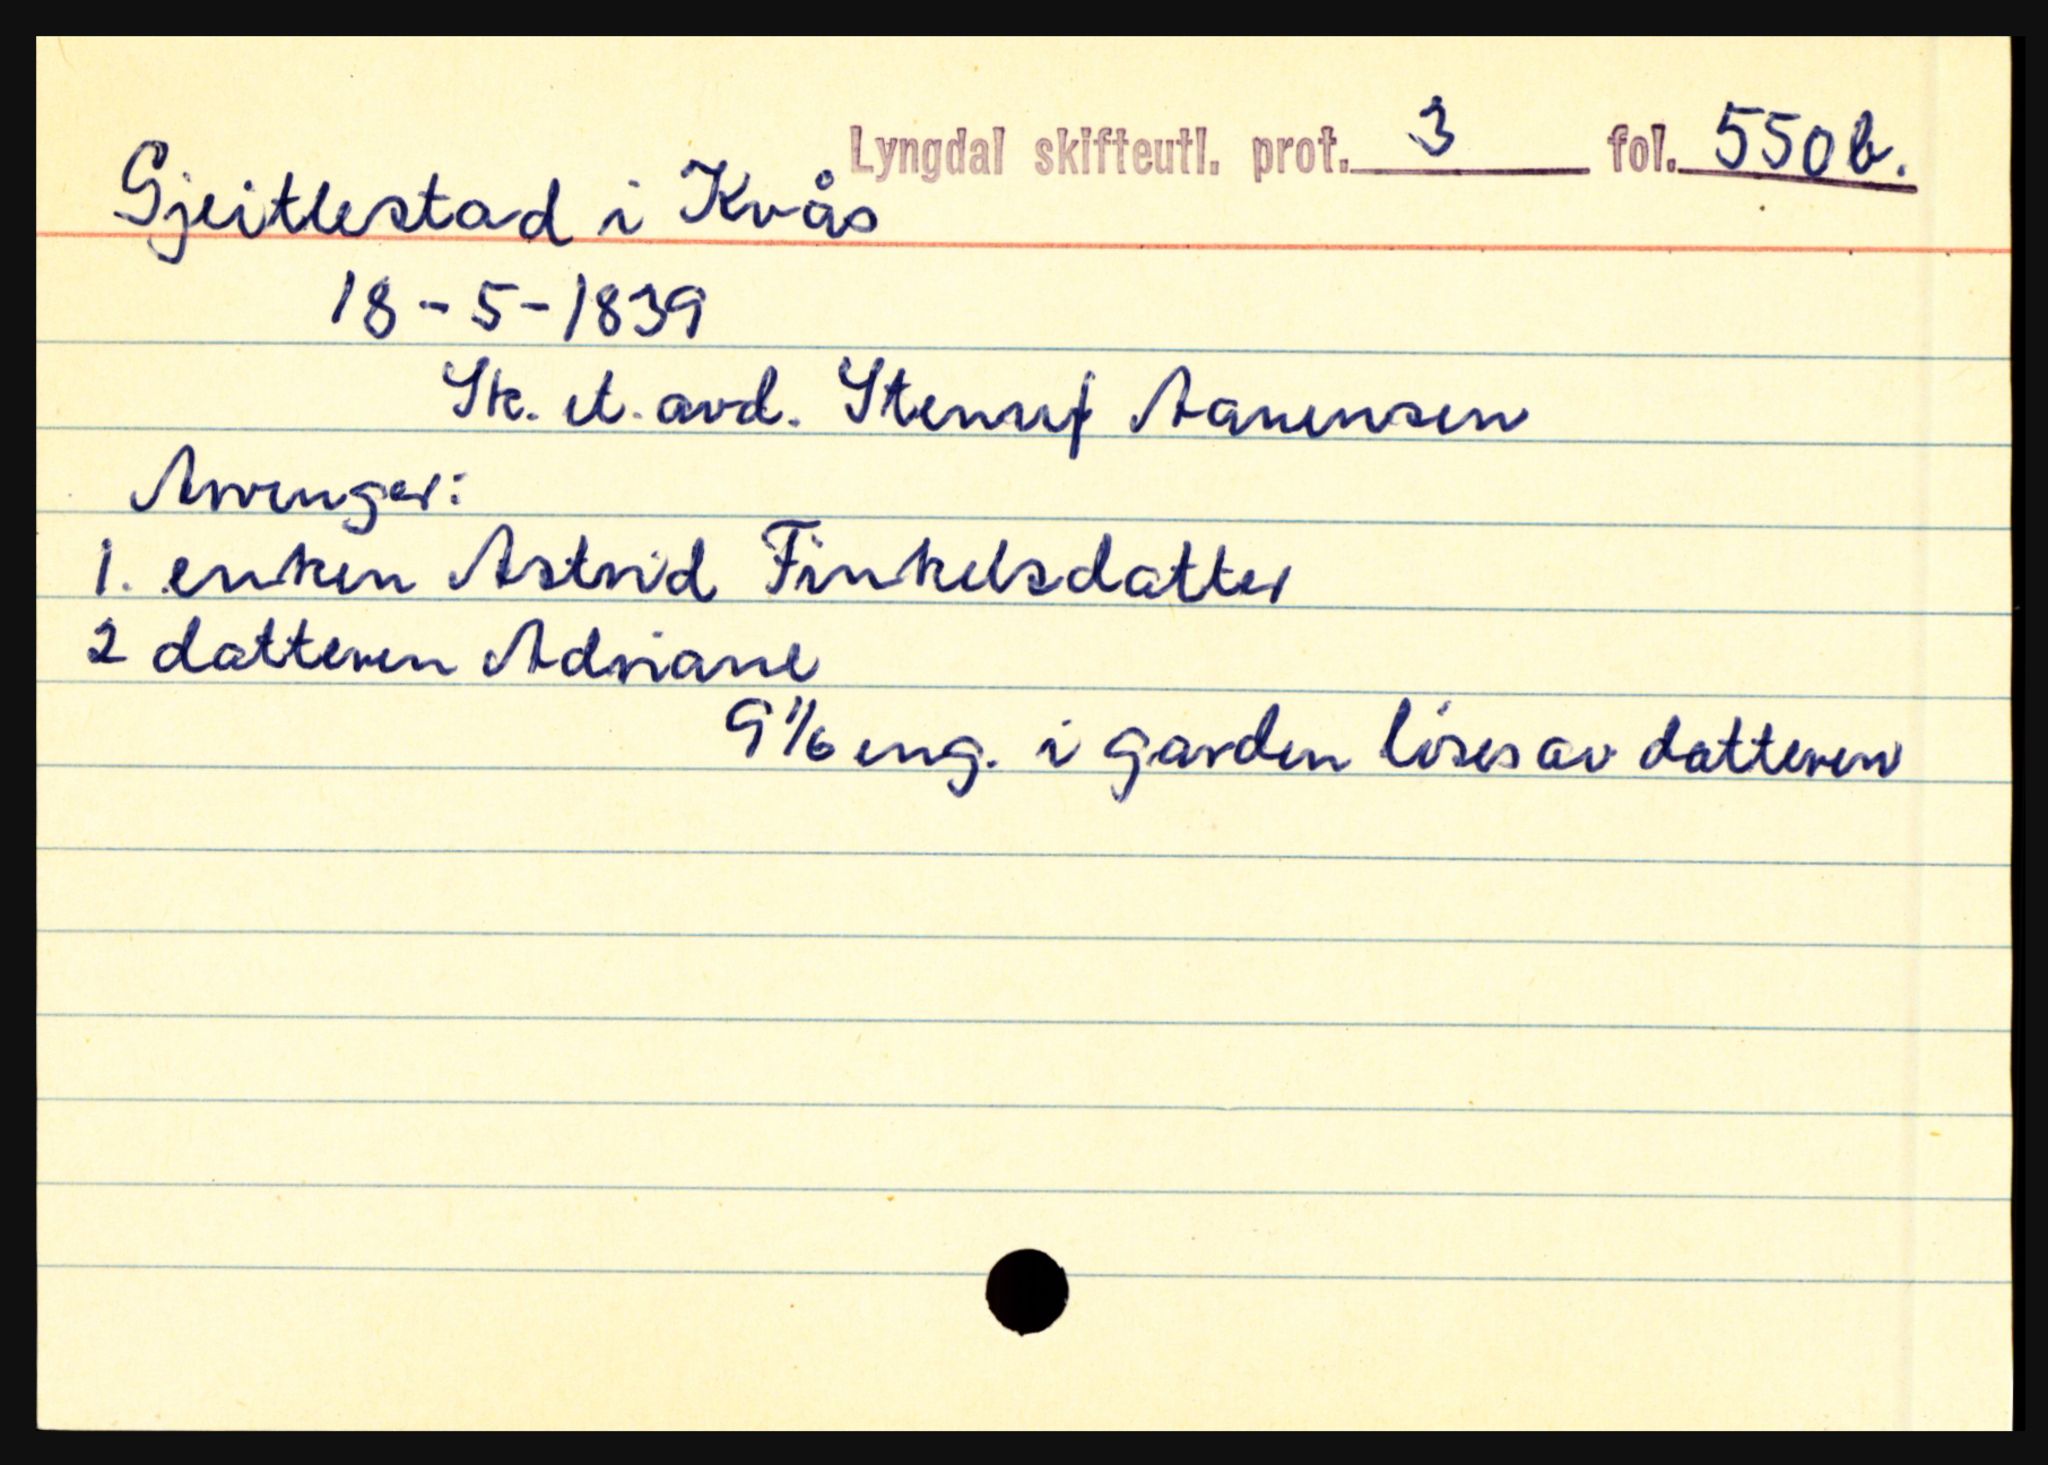 Lyngdal skifteutl. prot. 3 fol. 550b.
Gjeitlestad i Kvås
18-5-1839
Sk. et. avd. Stenulf Aanensen
Arvinger:
1. enken Astrid Finkelsdatter
2 datteren Adriane
9 1/6 eng. i garden löses av datteren